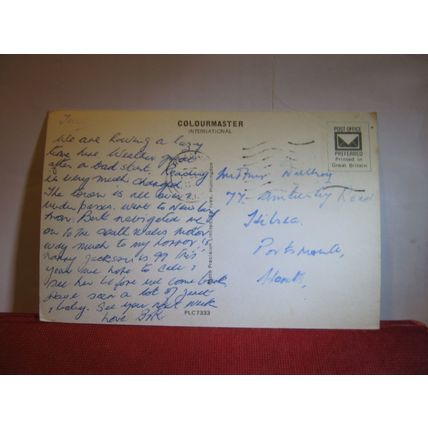 Tony
COLOURMASTER
INTERNATIONAL
POST OFFICE
PREFERRED
Printed in
Great Britain
We are having a lazy
time here Weather good
after a bad start. Reading
is very much changed
The town is all over &
under passes. went to Newbury
from. Bert navigated me
on to the south wales motor
way much to my horror.
nanny Jackson is 99 this
year we hope to call &
see her before we come back
have seen a lot of Just
& baby. See you next week
love
Mr & Mrs
77
Hilsea
Portsmouth,
Hants,
PLC7333